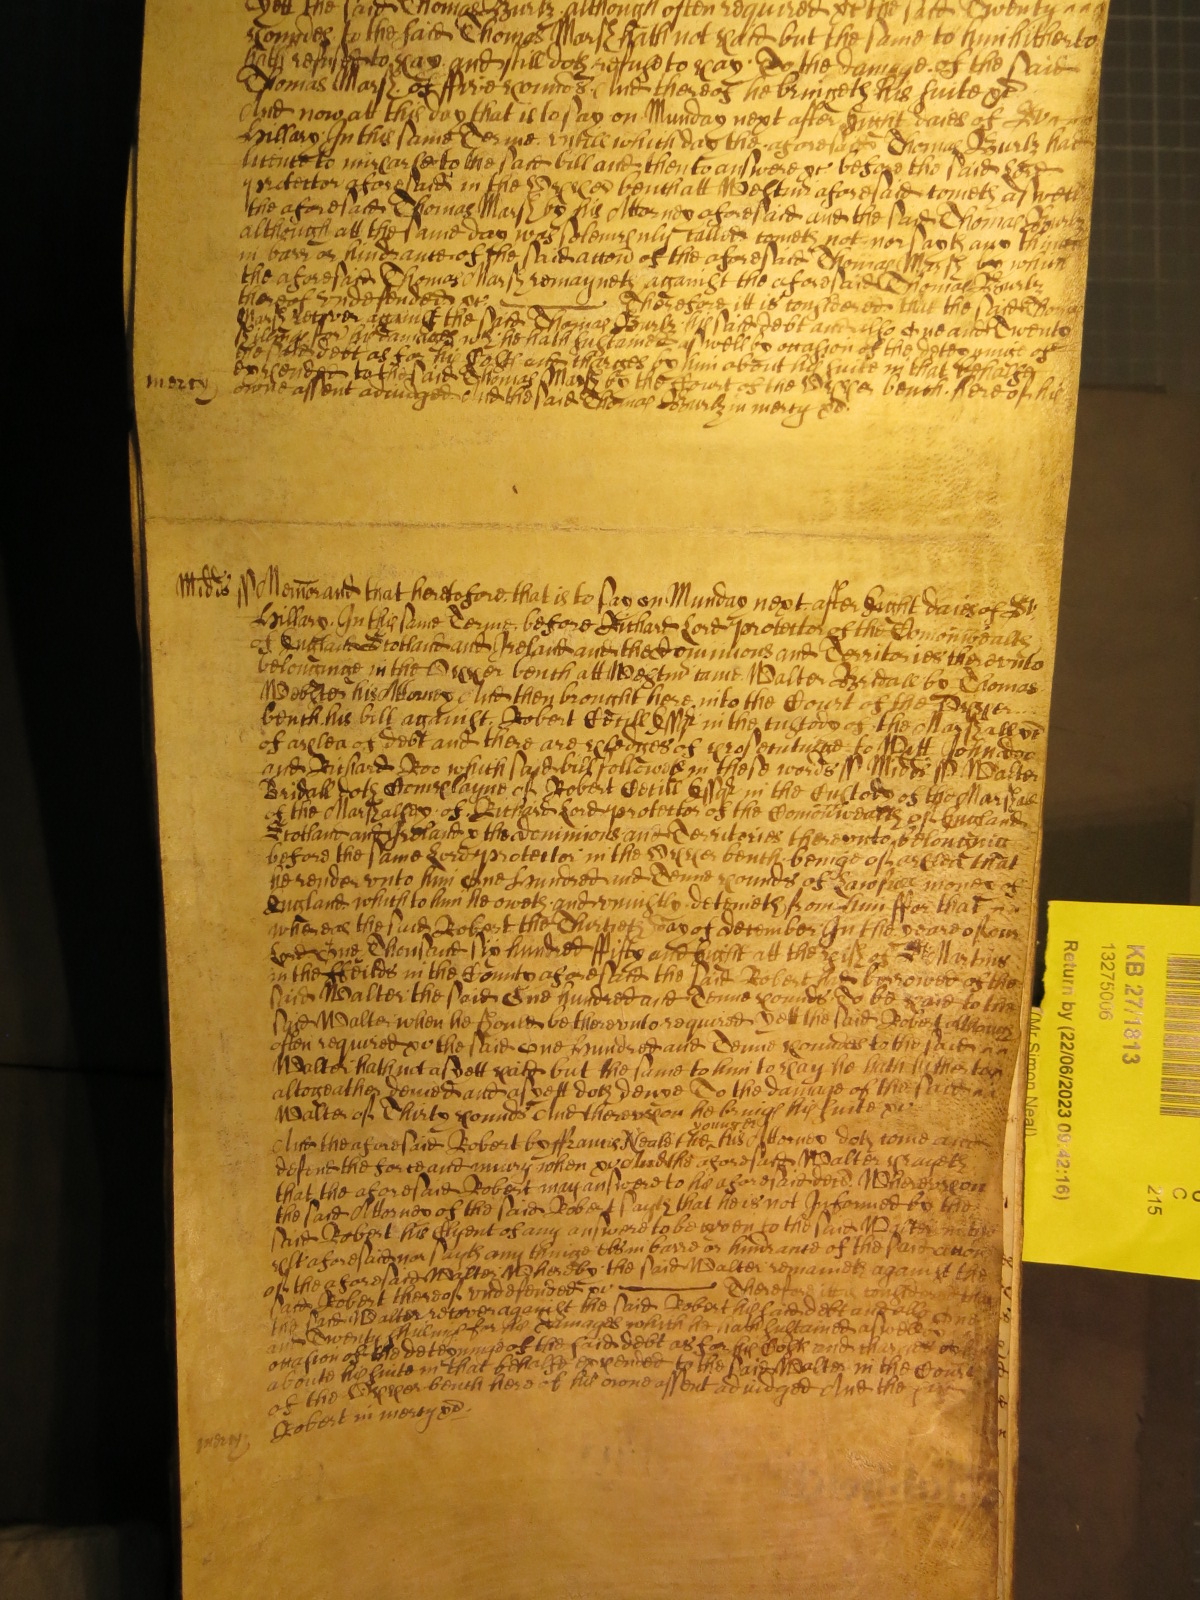 Yett the said Thomas Burtz although often required &c the said Twenty
pounds to the said Thomas Marsh hath not paid but the same to him hitherto
hath refused to pay and still doth refuse to pay To the damage of the said
Thomas Marsh of ffive pounds And thereof he bringeth his suite &c
And now att this day that is to say on Munday next after Eight daies of St
Hillary In this same Terme untill which day the aforesaid Thomas Burtz had
licence to imparle to the said bill and then to answere &c before the said Lord
Protector aforesaid in the Upper bench att Westmr aforesaid cometh aswell
the aforesaid Thomas Marsh by his Attorney aforesaid and the said Thomas Burtz
although att the same day was solempnly called cometh not nor sayth any thinge
in barr or hindrance of the said accon of the aforesaid Thomas Marsh by which
the aforesaid Thomas Marsh remayneth against the aforesaid Thomas Burtz
thereof undefended &c Therefore itt is considered that the said Thomas
Marsh recover against the said Thomas Burtz his said debt and also One and Twenty
shillings for his damages wch he hath sustained aswell by occasion of the deteyninge of
the said debt as for his Costs and charges by him about his suite in that behalfe
expended to the said Thomas Marsh by the Court of the Upper bench here of his
mercy owne assent adiudged And the said Thomas Burtz in mercy &c
Midds ss Memorand that heretofore that is to say on Munday next after Eight daies of St
Hillary In this same Terme before Richard Lord Protector of the Comonwealth
of England Scotland and Ireland and the Dominions and Territories thereunto
belonginge in the Upper bench att Westmr came Walter Bridall by Thomas
Webster his Attorney And then brought here into the Court of the Upper
bench his bill against Robert Cecill Esqr in the custody of the Marshall &c
of a plea of debt and there are pledges of prosecutinge to Witt John Doo
and Richard Roo which said bill followeth in these words ss Midds ss Walter
Bridall doth Complayne of Robert Cecill Esqr in the Custody of the Marshall
of the Marshalsey of Richard Lord Protector of the Comonwealth of England
Scotland and Ireland & the dominions and Territories thereunto belonginge
before the same Lord Protector in the Upper bench beinge of a plea that
he render unto him One hundred and Tenne pounds of Lawfull money of
England which to him he oweth and uniustly deteyneth from him ffor that
whereas the said Robert the Thirtieth day of December In the yeare of our
Lord One Thousand six hundred ffifty and Eight att the pish of St Martins
in the ffeilds in the County aforesaid the said Robert had borrowed of the
said Walter the said One hundred and Tenne pounds To be paid to the
said Walter when he should be thereunto required Yett the said Robert although
often required &c the said One hundred and Tenne pounds to the said
Walter hath not as yett paid but the same to him to pay he hath hitherto
altogeather denied and as yett doth denye To the damage of the said
Walter of Thirty pounds And thereupon he brings his suite &c
And the aforesaid Robert by ffrancis Neale the younger his Attorney doth come and
defend the force and iniury when &c And the aforesaid Walter prayeth
that the aforesaid Robert may answere to his aforesaid Whereupon
the said Attorney of the said Robert sayth that he is not Informed by the
said Robert his Clyent of any answere to be given to the said Walter in the
aforesaid nor sayth any thinge els in barre or hindrance of the said accon
of the aforesaid Walter Whereby the said Walter remaineth against the
said Robert thereof undefended &c Therefore itt is considered that
the said Walter recover against the said Robert his said debt and also One
and Twenty shillings for his damages which he hath sustained aswell by
occasion of the deteyninge of the said debt as for his Costs and charges
aboute his suite in that behalfe expended to the said Walter in the Court
of the Upper bench here of his owne assent adiudged And the said
mercy Robert in mercy &c
KB 27/1813
13275006
Return by (22/06/2023 09:42:16)
(Mr Simon Neal)
C
215